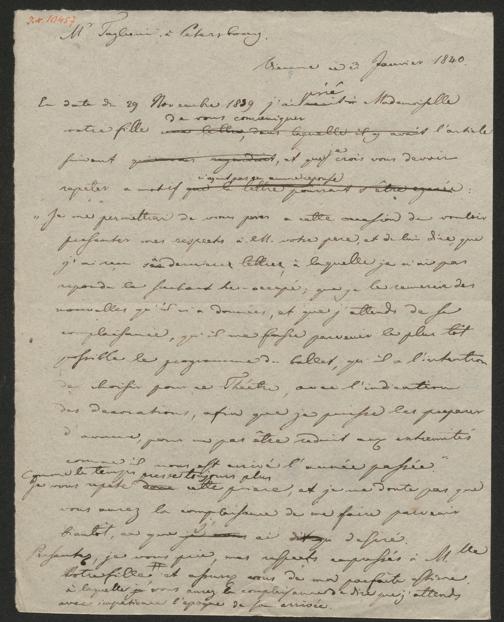 J.N. 10457
Mr Taglioni à Petersbourg.
Vienne ce 3 Janvier 1840.
En date du 29 Novembre 1839 j'ai prié Mademoiselle
votre fille de vous communiquer l'article
suivant, et que je crois vous devoir
repeter a motif :
„ Je me permettrai de vous prier a cette occasion de vouloir
presenter mes respects à M. votre pere, et de lui dire, que
j'ai reçu sa derniere lettre, à laquelle je n'ai pas
repondu le sachant tres-occupé; que je le remercie des
nouvelles qu'il m'a données, et que j'attends de sa
complaisance, qu'il me fasse parvenir le plus tôt
possible le programme du ballet, qu'il a l'intention
de choisir pour ce Théâtre, avec l'indication
des decorations, afin que je puisse les preparer
d'avance, pour ne pas être reduit aux extremités
comme il nous est arrivé l'année passée"
Comme le temps presse toujours plus
je vous repete cette priere, et je ne doute pas que
vous aurez la complaisance de me faire parvenir
bientot, ce que j'ai desiré.
Presentez, je vous prie, mes respects empressés à Mlle
votre fille # et assurez vous de ma parfaite estime.
à laquelle je vous aurez la complaisance de dire que j'attends
avec impatience l'epoque de son arrivée.